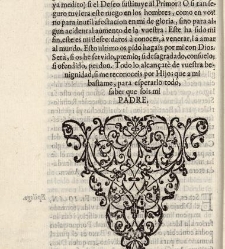 ya merito) si el Deseo sustituye al Primor? O si tan se-
guro tuviera este riego mi los hombres, como en vos!
mo para inutil afectuosa en mi de gloria, sino para al-
gun accidental aumento de la vuestra! Este ha sido mi
fin, este es mi desseo: daros à conocer, à venerar, à à amar
al mundo. Esto ultimo os pido hagais por mi con Dios.
Serà, si os he servido, premio; si desagradado, consuelo;
si ofendido, perdon. Todo lo alcançarè de vuestra be-
nignidad, si me reconoceis por Hijo: que a mi
bastame, para esperarlo todo,
saber que sois mi
PADRE.